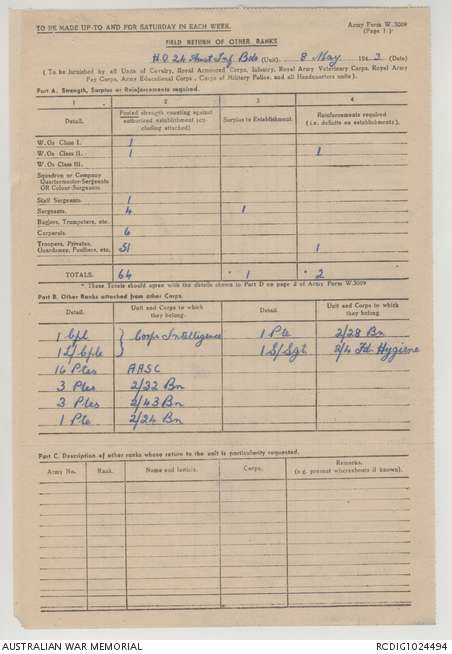 TO BE MADE UP TO AND FOR SATURDAY IN EACH WEEK.
Army Form W.3009
(Page 1.)
FIELD RETURN OF OTHER RANKS
H.Q 24 Aust Inf. Bde (Unit). 8 May 1943 (Date)
(To be furnished by all Units of Cavalry, Royal Armoured Corps, Infantry, Royal Army Veterinary Corps, Royal Army
Pay Corps, Army Educational Corps, Corps of Military Police, and all Headquarters units).
Part A: Strength, Surplus or Reinforcements required.
1 2 3 4
Detail. Posted strength counting against authorized establishment (excluding attached) Surplus to Establishment. Reinforcements required (i.e. deficits on establishments).
W.Os Class I. 1
W.Os Class II. 1 1
W.Os Class III.
Squadron or Company
Quartermaster-Sergeants
OR Colour-Sergeants.
Staff Sergeants 1
Sergeants. 4 1
Buglers, Trumpeters, etc.
Corporals 6
Troopers, Privates,
Guardsmen, Fusiliers, etc. 51 1
TOTALS. 64 * 1 * 2
* These Totals should agree with the details shown in Part D on page 2 of Army Form W.3009
Part B. Other Ranks attached from other Corps.
Detail. Unit and Corps to which they belong. Detail. Unit and Corps to which they belong.
1 Cpl } Corps Intelligence 1 Pte 2/28 Bn
1 L/Cpl 1 S/Sgt 2/4 Fd. Hygiene
16 Ptes AASC
3 Ptes 2/32 Bn
3 Ptes 2/43 Bn
1 Pte 2/24 Bn
Part C. Description of other ranks whose return to the unit is particularly requested.
Army No. Rank. Name and Initials. Corps. Remarks.
(e.g. present whereabouts if known).
AUSTRALIAN WAR MEMORIAL RCDIG1024494